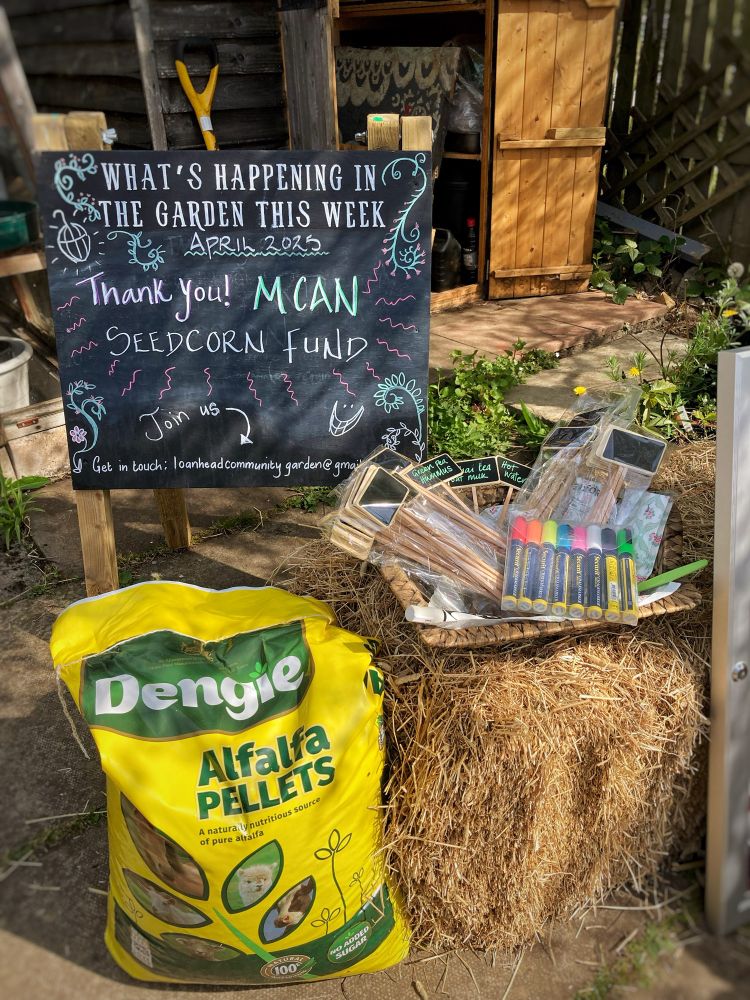 WHAT'S HAPPENING IN
THE GARDEN THIS WEEK
APRIL 2025
Thank you! MCAN
SEEDCORN FUND
Join us
Get in touch: loanheadcommunitygarden@gmai
Green Tea
Hummus
tea
oat milk
Hot
Water
Dengie
Alfalfa
PELLETS
A naturally nutritious source
of pure alfalfa
NATURAL
100%
NO ADDED
SUGAR